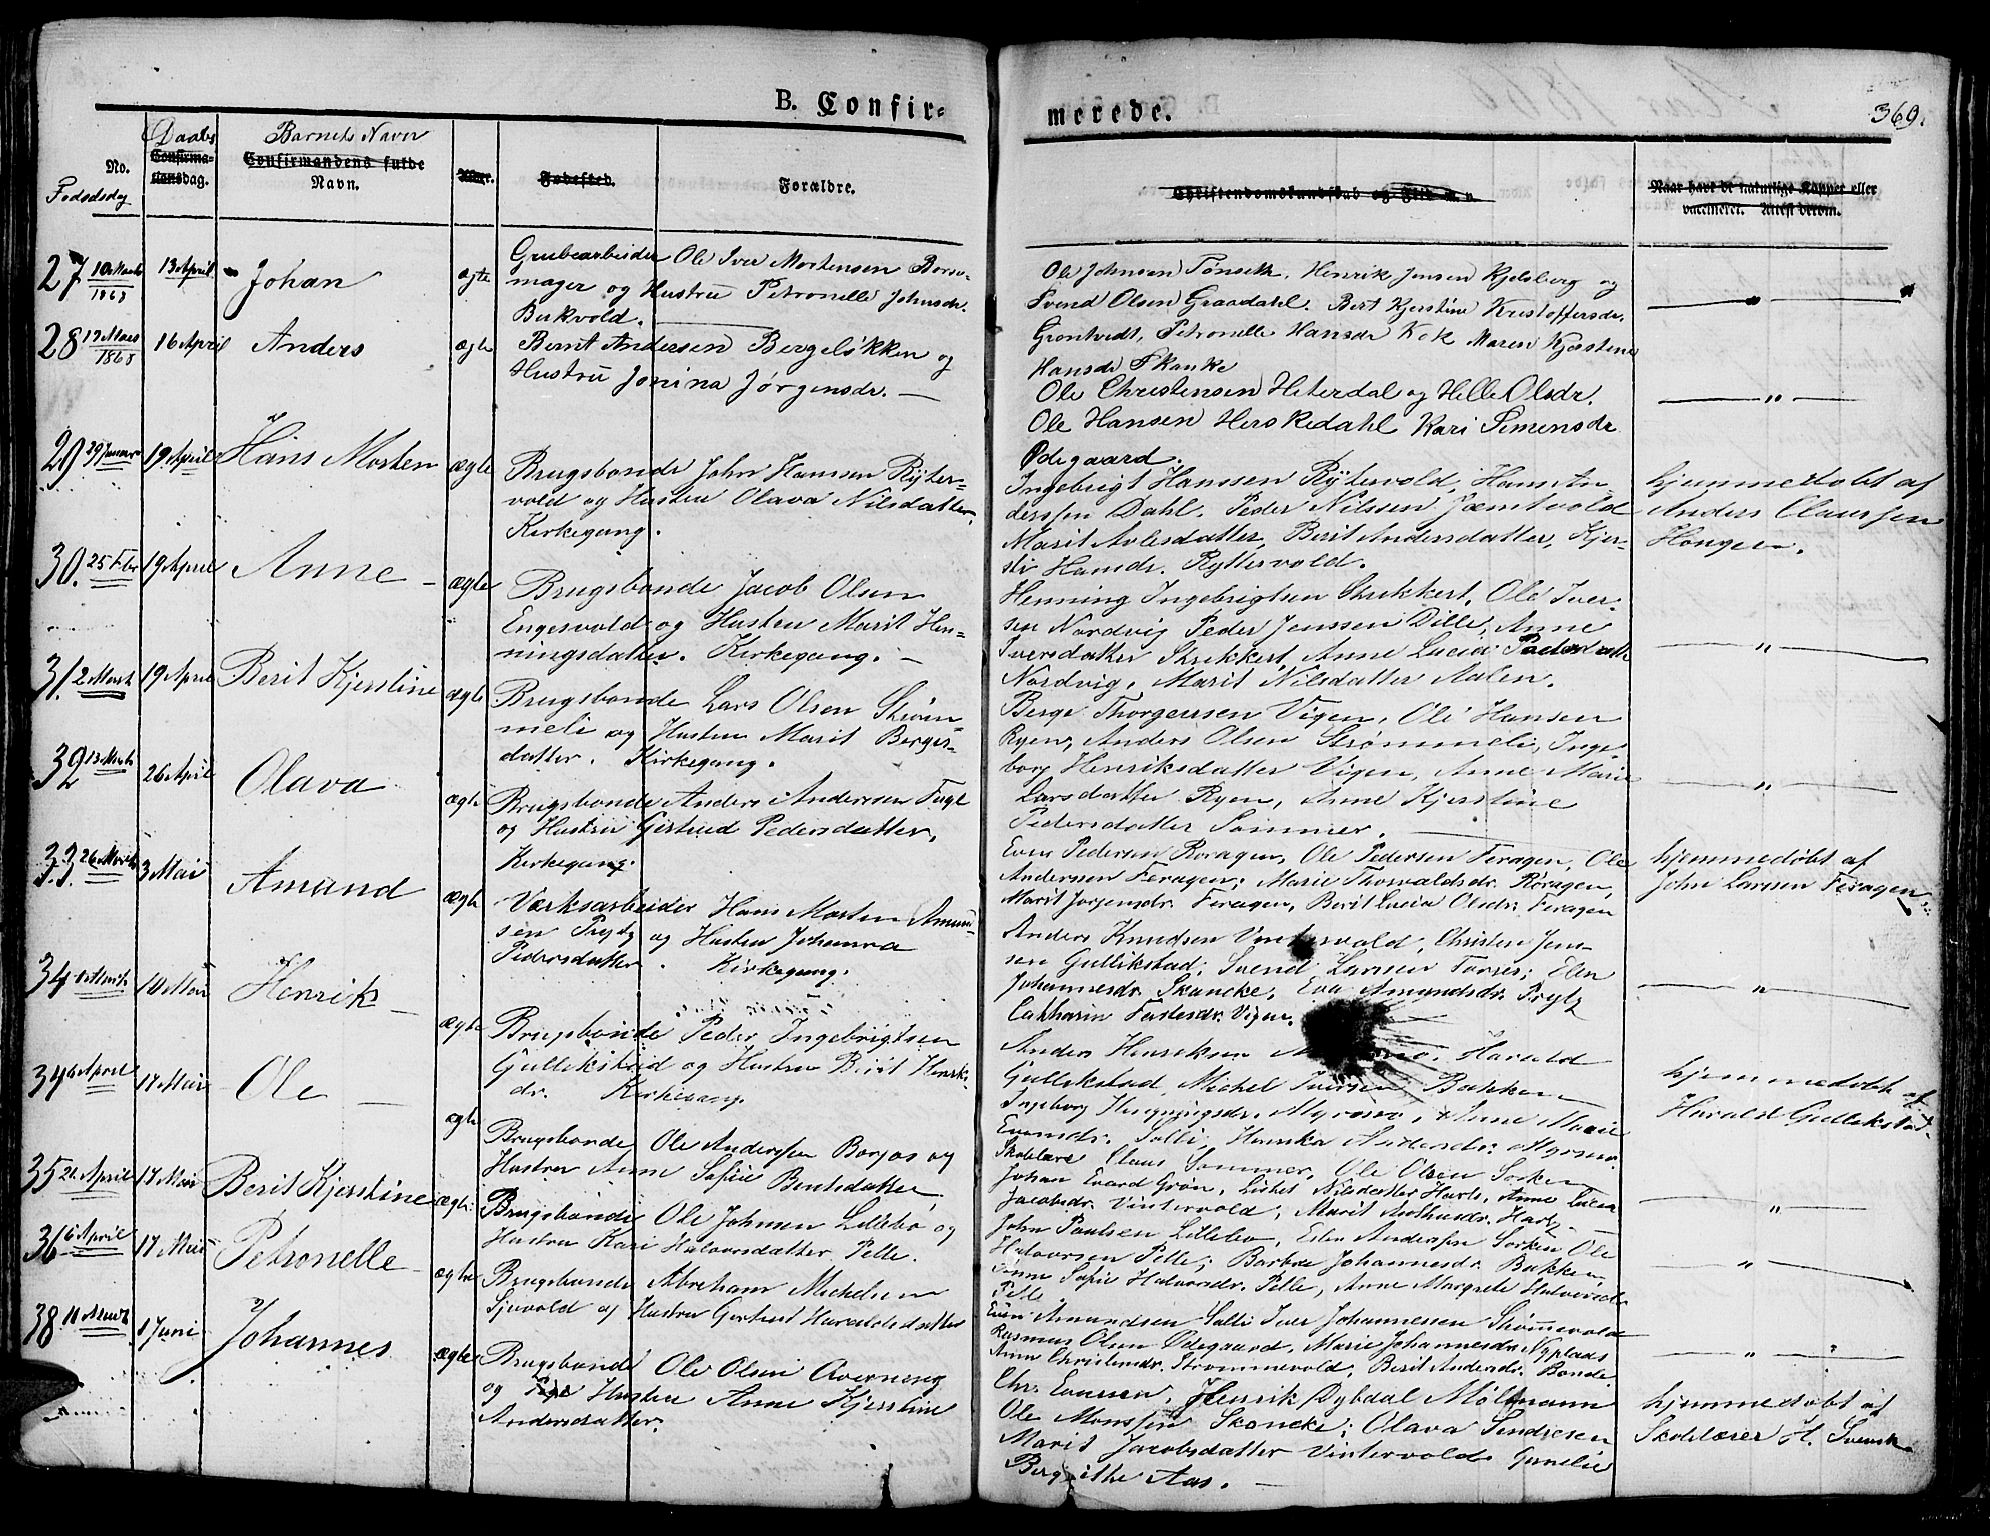 B. Confir-
merede.
369.
Daabs
Barnets Navn
No.
Confirma-
tionsdag.
Confirmandens fulde
Navn.
Alder.
Fødested.
Forældre.
Christendomskundskab og Flid m. v.
Naar havt de naturlige Kopper eller
vaccineret. Attest derom.
Fødselsdag
27 10 Marts 1868 13 April Johan ægte
Grubearbeider Ole Iver Mortensen Borse-
mager og Hustru Petronelle Johnsdr.
Birkvold.
Ole Johnsen Tønseth, Henrik Jensen Kjelsberg og
Svend Olsen Graadahl. Berit Kjerstine Kristoffersdr.
Grontvedt, Petronelle Hansdr Kok Maren Kjerstine
Hansdr Skanke
— " —
28 1868 16 April Anders ægte
Bernt Andersen Bergeløkken og
Hustru Jonina Jørgensdr. —
Ole Christensen Hiterdal og Hille Olsdr.
Ole Hansen Herskedahl Kari Simensdr
Ødegaard.
— " —
29 29 Januar 19 April Hans Morten ægte
Brugsbonde John Hansen Ryter-
vold og Hustru Olava Nilsdatter,
Kirkegang.
Ingebrigt Hanssen Rytervold, Hans An-
derssen Dahl. Peder Nilssen Jæmtvold
Marit Avlesdatter, Berit Andersdatter, Kjer-
sti Hansdr. Ryttervold.
hjemmedøbt af
Anders Claussen
Hongen.
30. 25 Fbr 19 April Anne — ægte
Brugsbonde Jacob Olsen
Engesvold og Hustru Marit Hen-
ningsdatter. Kirkegang. —
Henning Ingebrigtsen Skrikkert, Ole Iver-
sen Nordvig Peder Jenssen Dille, Anne
Iversdatter Skrikkert, Anne Lucia Pedersdatter
Nordvig, Marit Nilsdatter Aalen.
— " —
31. 2 Marts 19 April Berit Kjerstine ægte
Brugsbonde Lars Olsen Strøm-
meli og Hustru Marit Berges-
datter. Kirkegang.
Berge Thorgersen Vigen, Ole Hansen
Ryen, Anders Olsen Strømmeli, Inge-
borg Henriksdatter Vigen, Anne Marie
Larsdatter Ryen, Anne Kjerstine
Pedersdatter Sommer.
— " —
32 13 Marts 26 April Olava ægte
Brugsbonde Anders Andersen Fugl
og Hustru Gertrud Pedersdatter,
Kirkegang.
Even Pedersen Roragen, Ole Pedersen Feragen, Ole
Andersen Feragen; Marie Thorvaldsdr. Røragen,
Marit Jørgensdr. Feragen, Berit Lucia Olsdr. Feragen
hjemmedøbt af
John Larssen Feragen
33. 26 Marts 3 Mai Amund ægte
Værksarbeider Hans Morten Amund-
sen Prytz og Hustru Johanna
Pedersdatter. Kirkegang.
Anders Knudsen Vintervold, Christen Jens-
sen Gullikstad; Svend Larssen Torres; Elen
Johannesdr. Skancke, Eva Amundsdr. Prytz
Catharin Fastesdr. Vigen.
— " —
34 Marts 10 Mai Henrik — ægte
Brugsbonde Peder Ingebrigtsen
Gullikstad og Hustru Berit Henriks-
dr. Kirkegang.
Anders Henriksen Harald
Gullikstad, Michel Iversen Bakken
Ingeborg Henningsdr. Myrmo, Anne Marie
Evensdr. Galli, Hanska Andersdr. Myrmo.
hjemmedøbt af
Harald Gullikstad.
34 6 April 17 Mai Ole — ægte
Brugsbonde Ole Anderssen Borgos og
Hustru Anne Sofie Berntsdatter
Skolelære Claus Sommer, Ole Olsen Sorken
Johan Evard Grøn, Lisbet Nilsdatter Harb, Anne Lucia
Jacobsdr. Vintervold; Marit Harb
— " —
35 21 April 17 Mai Berit Kjerstine ægte
Brugsbonde Ole Johnsen Lillebo og
Hustru Kari Halvorsdatter Pelle.
John Paulsen Lillebo, Esten Anderssen Sorken Ole
Halvorsen Pelle; Barbra Johannesdr. Bakken,
Anne Sofie Halvorsdr. Pelle, Anne Margrete Halvorsdr
Pelle
— " —
36 6 April 17 Mai Petronelle — ægte
Brugsbonde Abraham Michelsen
Sjevold og Hustru Gertrud Haraldsdatter
Even Amundsen Galli Iver Johannessen Strømmevold
Rasmus Olsen Ødegaard, Marie Johannesdr. Nyplads
Anne Christensdr. Strømmevold, Berit Andersdr. Bonde.
— " —
38 11 Marts 1 Juni Johannes ægte
Brugsbonde Ole Olsen Avernæng
og Hustru Anne Kjerstine
Andersdatter.
Chr. Evensen, Henrik Dybdal Møllmann
Ole Monssen Skancke; Olava Sendresen
Marit Jacobsdatter Vintervold Gunelie
Bergithe Aas. —
hjemmedøbt af
Skolelærer H. Svensk